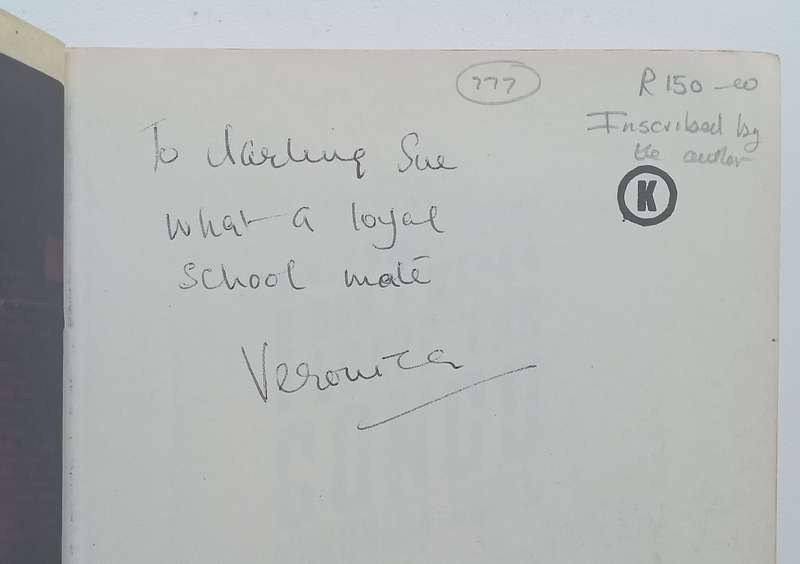 777
R150-00
Inscribed by
the author
K
To darling Sue
what a loyal
school mate
Veronica